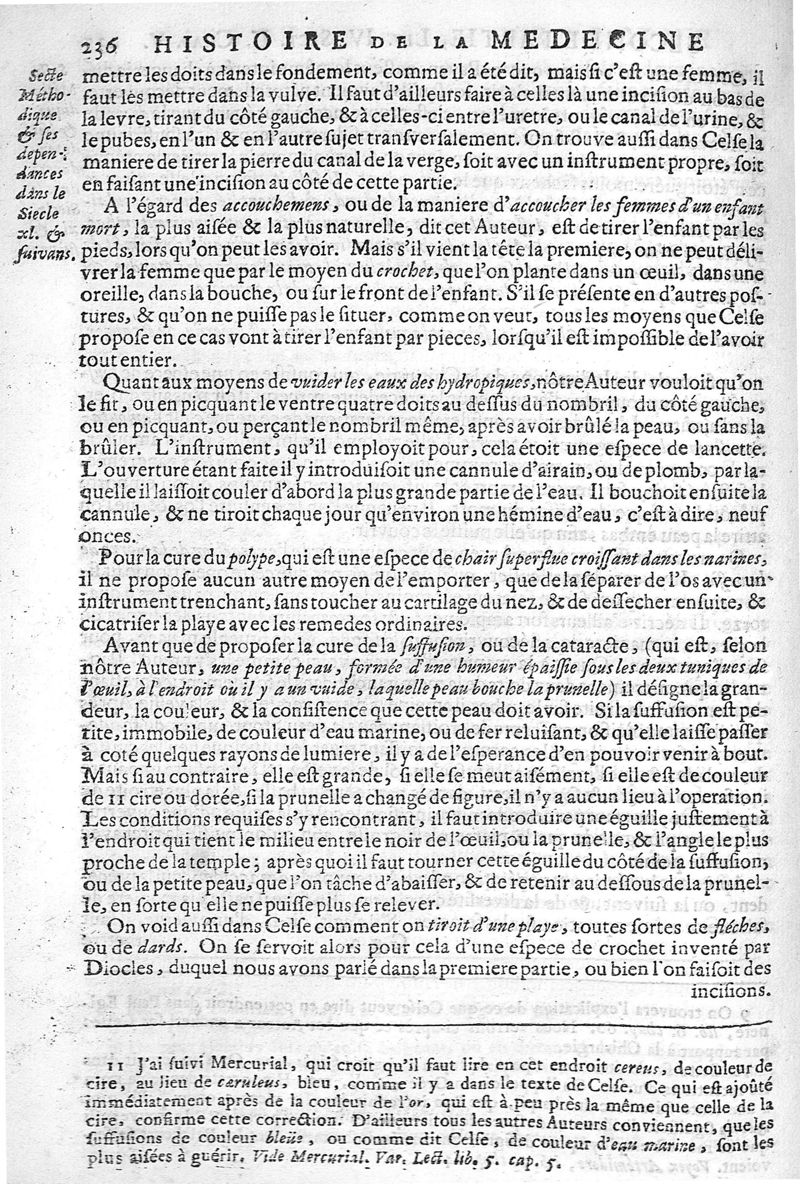 236 HISTOIRE DE LA MEDECINE
Secte
Métho-
dique
& ses
depen-
dances
dans le
Siecle
xl. &
suivans.
mettre les doits dans le fondement, comme il a été dit, mais si c'est une femme, il
faut les mettre dans la vulve. Il faut d'ailleurs faire à celles là une incision au bas de
la levre, tirant du côté gauche, & à celles-ci entre l'uretre, ou le canal de l'urine, &
le pubes, en l'un & en l'autre sujet transversalement. On trouve aussi dans Celse la
maniere de tirer la pierre du canal de la verge, soit avec un instrument propre, soit
en faisant une incision au côté de cette partie.
A l'égard des accouchemens, ou de la maniere d'accoucher les femmes d'un enfant
mort, la plus aisée & la plus naturelle, dit cet Auteur, est de tirer l'enfant par les
pieds, lors qu'on peut les avoir. Mais s'il vient la tête la premiere, on ne peut déli-
vrer la femme que par le moyen du crochet, que l'on plante dans un œuil, dans une
oreille, dans la bouche, ou sur le front de l'enfant. S'il se présente en d'autres pos-
tures, & qu'on ne puisse pas le situer, comme on veut, tous les moyens que Celse
propose en ce cas vont à tirer l'enfant par pieces, lorsqu'il est impossible de l'avoir
tout entier.
Quant aux moyens de vuider les eaux des hydropiques, nôtre Auteur vouloit qu'on
le fit, ou en picquant le ventre quatre doits au dessus du nombril, du côté gauche,
ou en picquant, ou perçant le nombril même, après avoir brûlé la peau, ou sans la
brûler. L'instrument, qu'il employoit pour, cela étoit une espece de lancette.
L'ouverture étant faite il y introduisoit une cannule d'airain, ou de plomb, par la-
quelle il laissoit couler d'abord la plus grande partie de l'eau. Il bouchoit ensuite la
cannule, & ne tiroit chaque jour qu'environ une hémine d'eau, c'est à dire, neuf
onces.
Pour la cure du polype, qui est une espece de chair superflue croissant dans les narines,
il ne propose aucun autre moyen de l'emporter, que de la séparer de l'os avec un
instrument trenchant, sans toucher au cartilage du nez, & de dessecher ensuite, &
cicatriser la playe avec les remedes ordinaires.
Avant que de proposer la cure de la suffusion, ou de la cataracte, (qui est, selon
nôtre Auteur, une petite peau, formée d'une humeur épaissie sous les deux tuniques de
l'œuil, à l'endroit où il y a un vuide, laquelle peau bouche la prunelle) il désigne la gran-
deur, la couleur, & la consistence que cette peau doit avoir. Si la suffusion est pe-
tite, immobile, de couleur d'eau marine, ou de fer reluisant, & qu'elle laisse passer
à coté quelques rayons de lumiere, il y a de l'esperance d'en pouvoir venir à bout.
Mais si au contraire, elle est grande, si elle se meut aisément, si elle est de couleur
de 11 cire ou dorée, si la prunelle a changé de figure, il n'y a aucun lieu à l'operation.
Les conditions requises s'y rencontrant, il faut introduire une éguille justement à
l'endroit qui tient le milieu entre le noir de l'œuil, ou la prunelle, & l'angle le plus
proche de la temple; après quoi il faut tourner cette éguille du côté de la suffusion,
ou de la petite peau, que l'on tâche d'abaisser, & de retenir au dessous de la prunel-
le, en sorte qu'elle ne puisse plus se relever.
On void aussi dans Celse comment on tiroit d'une playe, toutes sortes de fléches,
ou de dards. On se servoit alors pour cela d'une espece de crochet inventé par
Diocles, duquel nous avons parlé dans la premiere partie, ou bien l'on faisoit des
incisions.
11 J'ai suivi Mercurial, qui croit qu'il faut lire en cet endroit cereus, de couleur de
cire, au lieu de cæruleus, bleu, comme il y a dans le texte de Celse. Ce qui est ajoûté
immédiatement après de la couleur de l'or, qui est à peu près la même que celle de la
cire, confirme cette correction. D'ailleurs tous les autres Auteurs conviennent, que les
suffusions de couleur bleüe, ou comme dit Celse, de couleur d'eau marine, sont les
plus aisées à guérir. Vide Mercurial. Var. Lect. lib. 5. cap. 5.